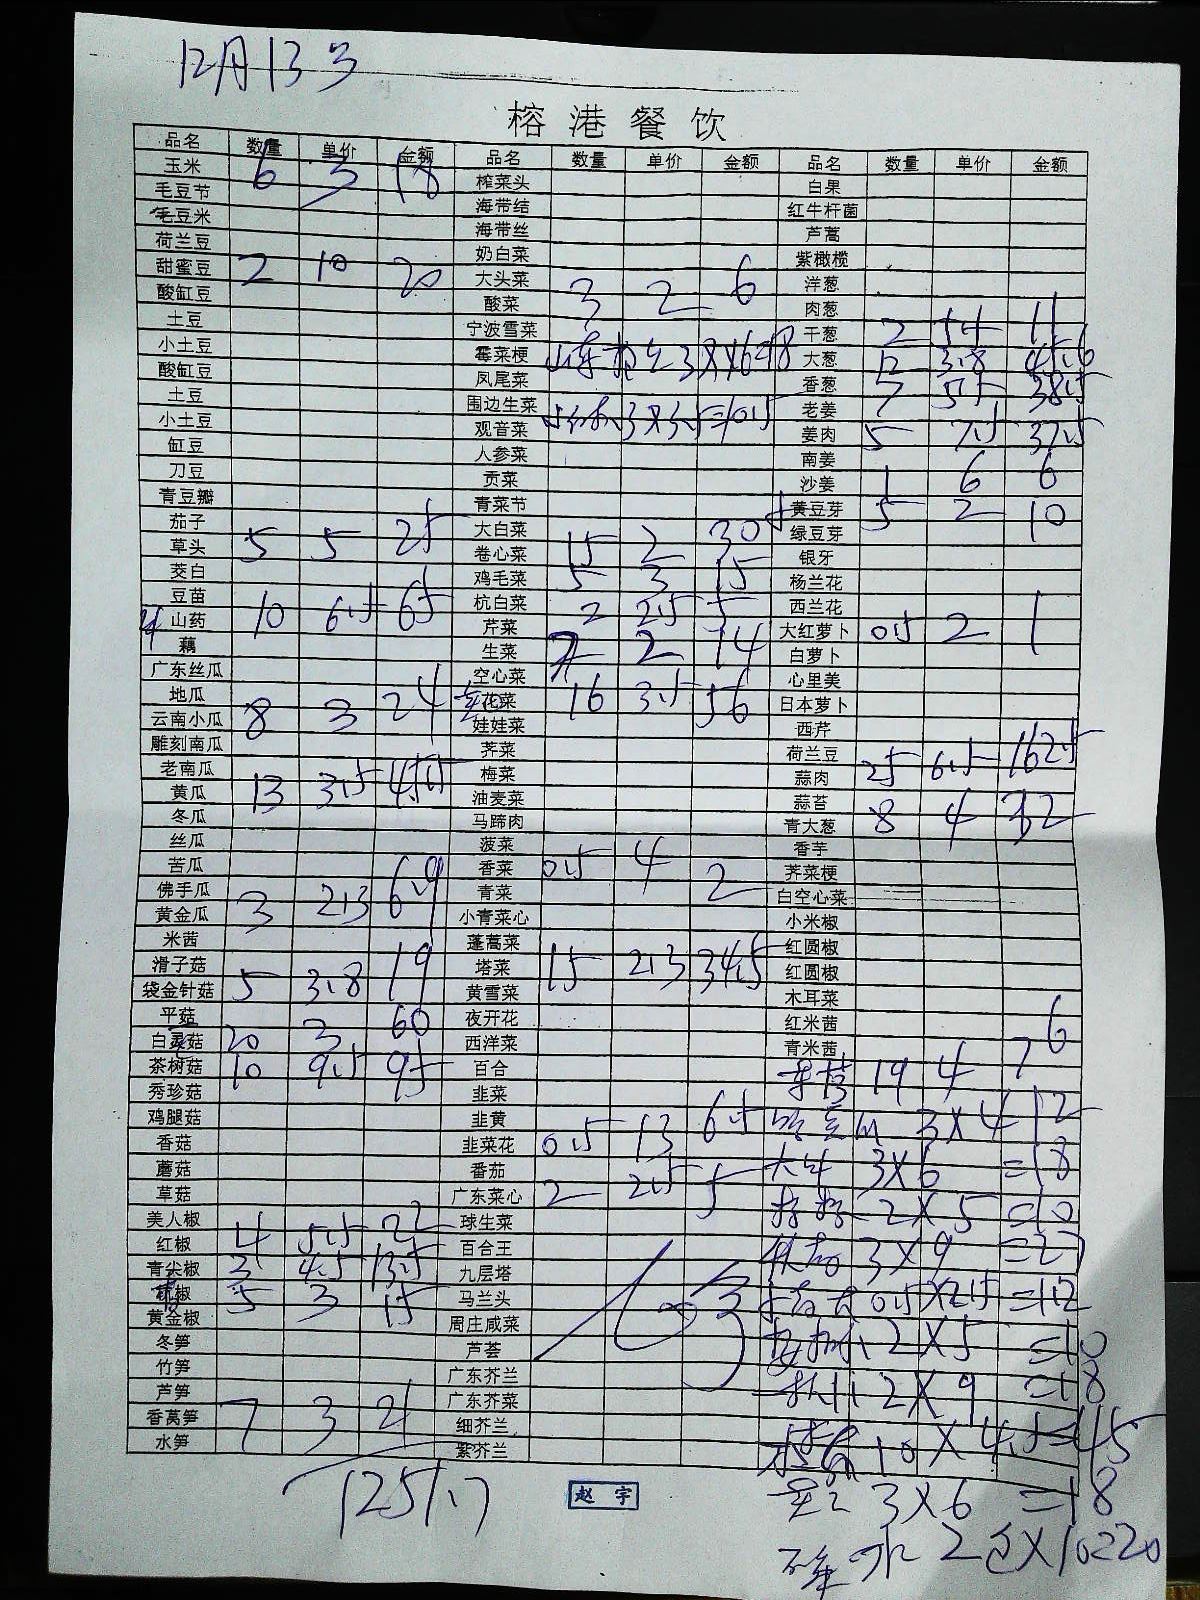 12月13号
榕港餐饮
品名 数量 单价 金额 品名 数量 单价 金额 品名 数量 单价 金额
玉米 6 3 18 榨菜头 白果
毛豆节 海带结 红牛杆菌
毛豆米 海带丝 芦蒿
荷兰豆 奶白菜 紫橄榄
甜蜜豆 2 10 20 大头菜 3 2 6 洋葱
酸缸豆 酸菜 肉葱
土豆 宁波雪菜 干葱 2
小土豆 霉菜梗 大葱 12 3.8 45.6
酸缸豆 凤尾菜 香葱 7 5.5 38.5
土豆 围边生菜 3X3.5=10.5 老姜
小土豆 观音菜 姜肉 5 7.5 37.5
缸豆 人参菜 南姜
刀豆 贡菜 沙姜 1 6 6
青豆瓣 青菜节 黄豆芽 5 2 10
茄子 大白菜 15 2 30 绿豆芽
草头 5 5 25 卷心菜 银牙
茭白 鸡毛菜 5 3 15 杨兰花
豆苗 10 6.5 65 杭白菜 2 2.5 5 西兰花
山药 芹菜 大红萝卜 0.5 2 1
藕 生菜 7 2 14 白萝卜
广东丝瓜 空心菜 心里美
地瓜 花菜 16 3.5 56 日本萝卜
云南小瓜 8 3 24 娃娃菜 西芹
雕刻南瓜 荠菜 荷兰豆
老南瓜 梅菜 蒜肉 25 6.5 162.5
黄瓜 13 3.5 45.5 油麦菜 蒜苔
冬瓜 马蹄肉 青大葱 8 4 32
丝瓜 菠菜 香芋
苦瓜 香菜 0.5 4 2 荠菜梗
佛手瓜 青菜 白空心菜
黄金瓜 3 2.3 6.9 小青菜心 小米椒
米茜 蓬蒿菜 红圆椒
滑子菇 塔菜 15 2.3 34.5 红圆椒
袋金针菇 5 3.8 19 黄雪菜 木耳菜
平菇 夜开花 红米茜
白灵菇 20 3 60 西洋菜 青米茜
茶树菇 10 9.5 95 百合 19 4 76
秀珍菇 韭菜
鸡腿菇 韭黄 3X4 12
香菇 韭菜花 0.5 13 6.5
蘑菇 番茄 3X6 =18
草菇 广东菜心 2 2.5 5 2X5 =10
美人椒 球生菜
红椒 4 5.5 22 百合王 3X9 =27
青尖椒 3 4.5 13.5 九层塔
5 3 15 马兰头 0.5X2.5 =1.2
黄金椒 周庄咸菜
冬笋 芦荟 2X5 =10
竹笋 广东芥兰
芦笋 广东芥菜 2X9 =18
香莴笋 7 3 21 细芥兰 10X4.5=45
水笋 紫芥兰
3X6 =18
1251.7 赵宇
水 2包X10=20